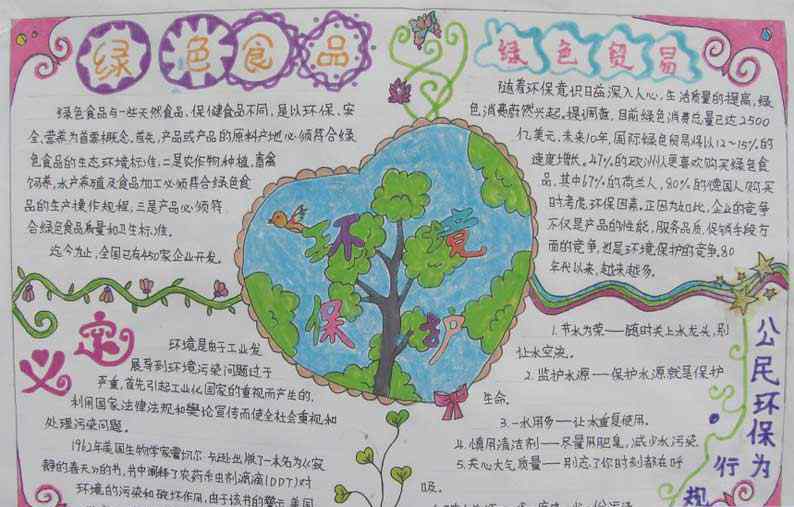 绿色食品
绿色食品与一些天然食品、保健食品不同，是以环保、安
全、营养为首要概念。首先，产品或产品的原料产地必须符合绿
色食品的生态环境标准，二是农作物种植，畜禽
饲养，水产养殖及食品加工必须符合绿色食
品的生产操作规程，三是产品必须符
合绿色食品质量和卫生标准。
迄今为止，全国已有450家企业开发。
绿色贸易
随着环保意识日益深入人心，生活质量的提高，绿
色消费蔚然兴起。据调查，目前绿色消费总量已达2500
亿美元，未来10年，国际绿色贸易将以12~15%的
速度增长。47%的欧洲人更喜欢购买绿色食
品，其中67%的荷兰人，80%的德国人购买
时考虑环保因素，正因为如此，企业的竞争
不仅是产品的性能，服务品质，促销手段方
面的竞争，也是环境保护的竞争。80
年代以来，越来越多。
环境
保护
定义
环境是由于工业发
展导到环境污染问题过于
严重，首先引起工业化国家的重视而产生的，
利用国家法律法规和舆论宣传而使全社会重视和
处理污染问题。
1962年美国生物学家蕾切尔·卡逊出版了一本名为《寂
静的春天》的书，书中阐释了农药杀虫剂滴滴(DDT)对
环境的污染和破坏作用，由于该书的警示，美国
公民环保为
行规
1.节水为荣——随时关上水龙头，别
让水空流。
2.监护水源——保护水源就是保护
生命。
3.一水用多——让水重复使用。
4.慎用清洁剂——尽量用肥皂，减少水污染
5.关心大气质量——别忘了你时刻都在呼
吸。